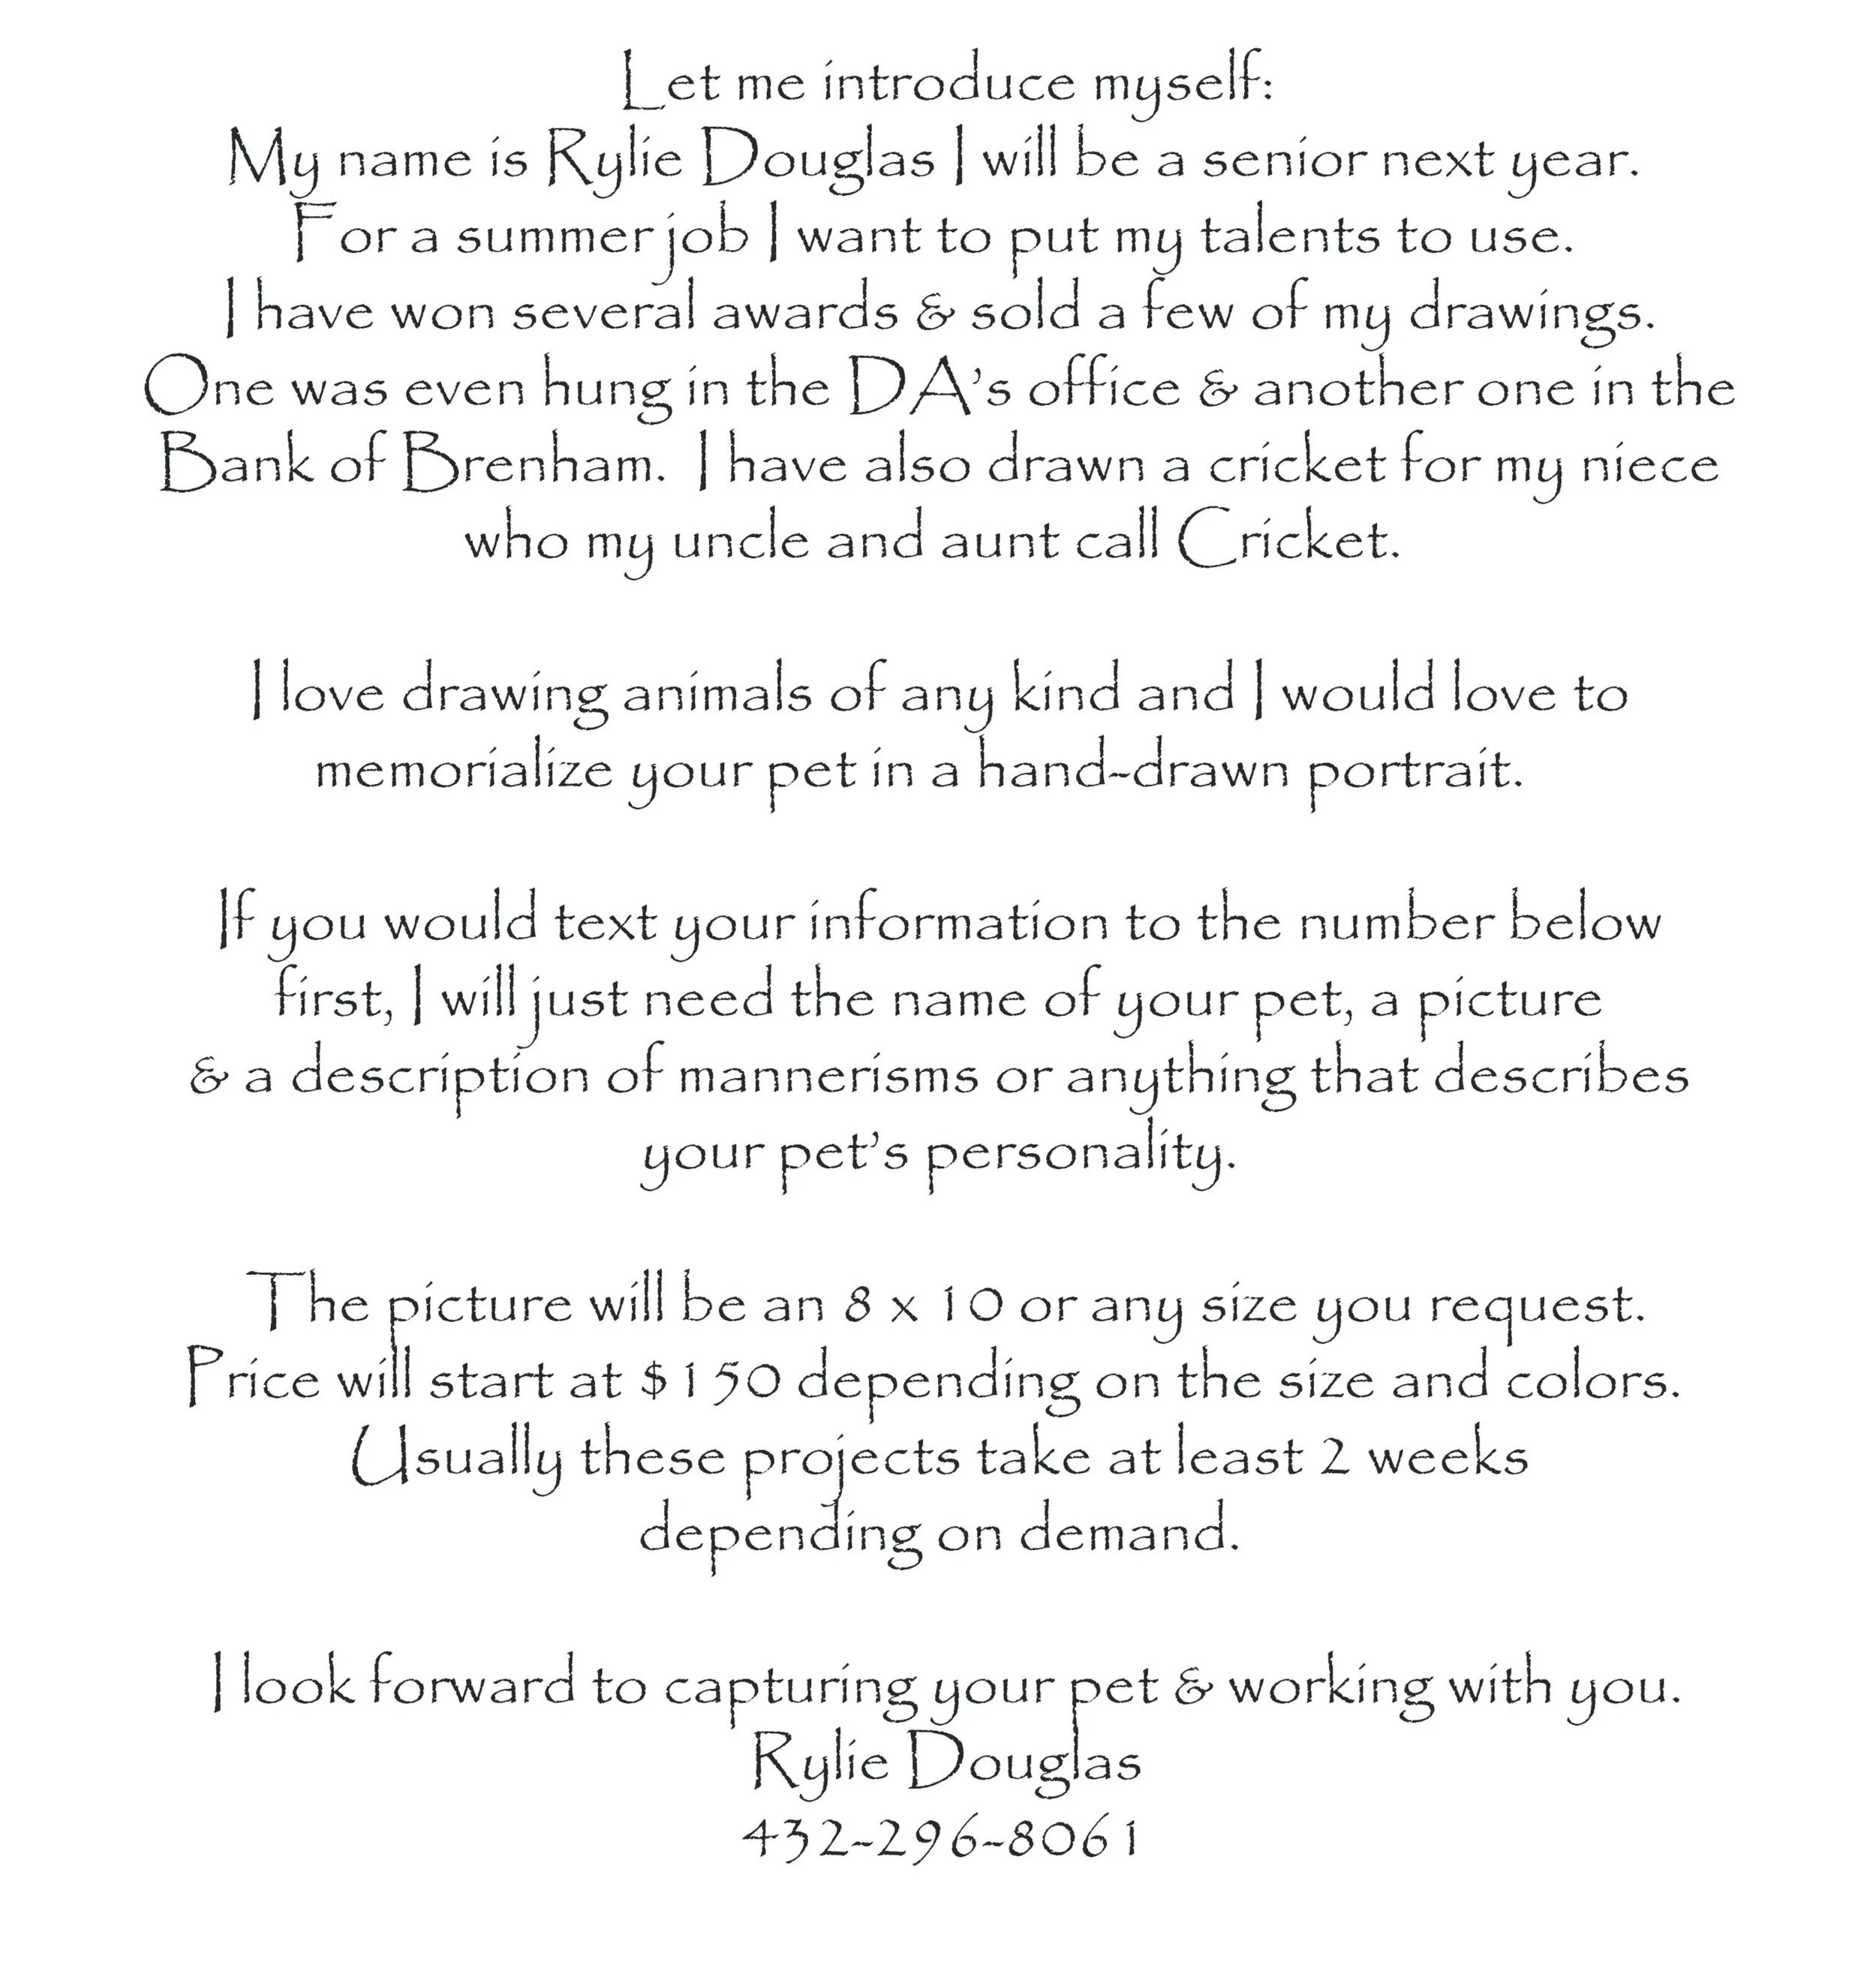 Let me introduce myself:
My name is Rylie Douglas I will be a senior next year.
For a summer job I want to put my talents to use.
I have won several awards & sold a few of my drawings.
One was even hung in the DA's office & another one in the
Bank of Brenham.  I have also drawn a cricket for my niece
who my uncle and aunt call Cricket.
I love drawing animals of any kind and I would love to
memorialize your pet in a hand-drawn portrait.
If you would text your information to the number below
first, I will just need the name of your pet, a picture
& a description of mannerisms or anything that describes
your pet's personality.
The picture will be an 8 x 10 or any size you request.
Price will start at $150 depending on the size and colors.
Usually these projects take at least 2 weeks
depending on demand.
I look forward to capturing your pet & working with you.
Rylie Douglas
432-296-8061